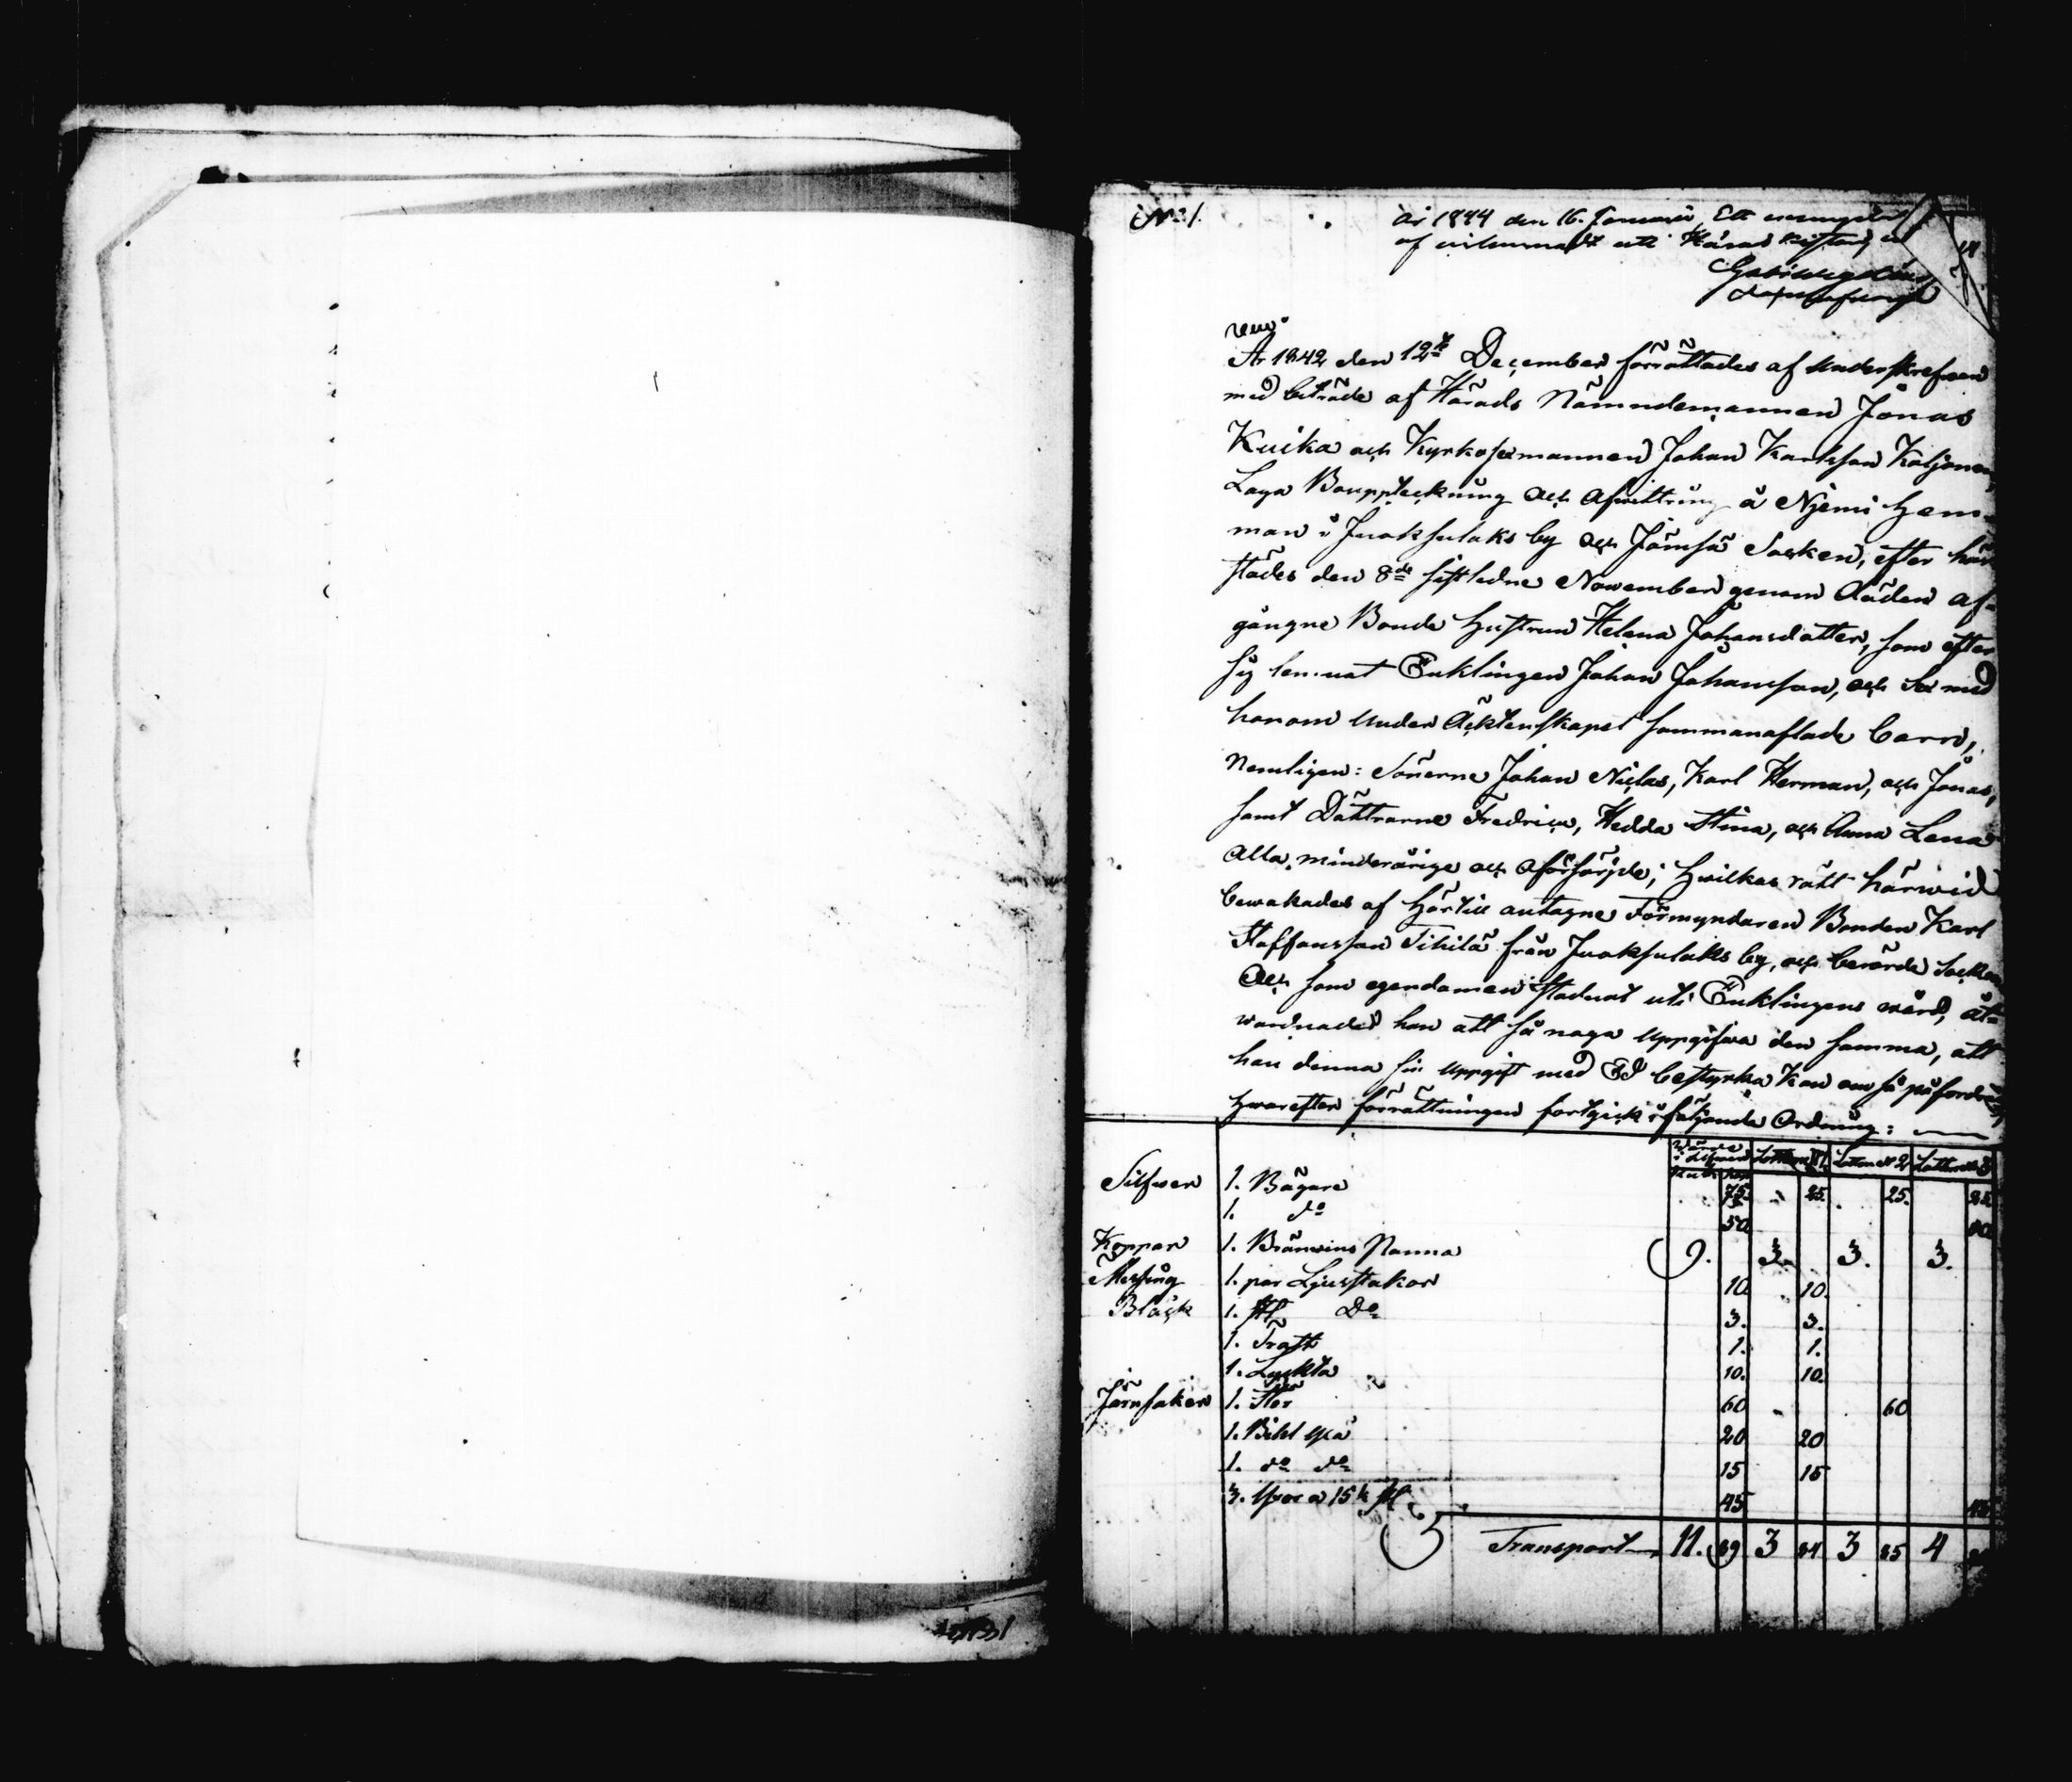 No 1.
år 1844 den 16. Januari, Ett exemplar
af
År 1842 den 12te December förrättades af Underskrefwen
med biträde af Härads Nämndemannen Jonas
Kuika och Kyrkosexmannen Johan Karlsson Kaljonen,
Laga Bouppteckning och Afwittring å Njemi Hem-
man i Juoksulaks by och Jämsä Socken, efter här
städes den 8de sistledne November genom Döden af-
gångne Bonde Hustrun Helena Johansdotter, som efter
sig lemnat Enklingen Johan Johansson, och sex med
honom under Äcktenskapet sammanaflade barn,
Nemligen: Sönerne Johan Niclas, Karl Herman, och Jonas,
samt Döttrarne Fredrica, Hedda Stina, och Anna Lena
Alla minderårige och oförsörjde; hwilkas rätt härwid
bewakades af härtill antagne Förmyndaren Bonden Karl
Staffansson Tihilä från Juoksulaks by, och berörde Socken
Och som egendomen stadnat uti Enklingens wård, åt-
warnades han att så noga uppgifwa den samma, att
han denna sin uppgift med Ed bestyrka kan om så påfordras,
hwarefter förrättningen fortgick i följande Ordning:
Wärde i Silfwer Lotten No 1. Lotten No 2 Lotten No 3
Silfwer 1. Bägare 75. 25. 25. 25.
1. do 50 50
Koppar 1. Bränwins Panna 9. 3. 3. 3.
Messing 1. par Ljusstakar 10. 10.
Bläck 1. st Do 3. 3.
1. Tratt 1. 1.
1. Lyckta 10. 10.
Järnsaker 1. Stör 60 60
1. Bihl Yxa 20 20
1. do do 15 15
3. Yxor a 15 k st 45 45
Transport 11. 89 3 84 3 85 4